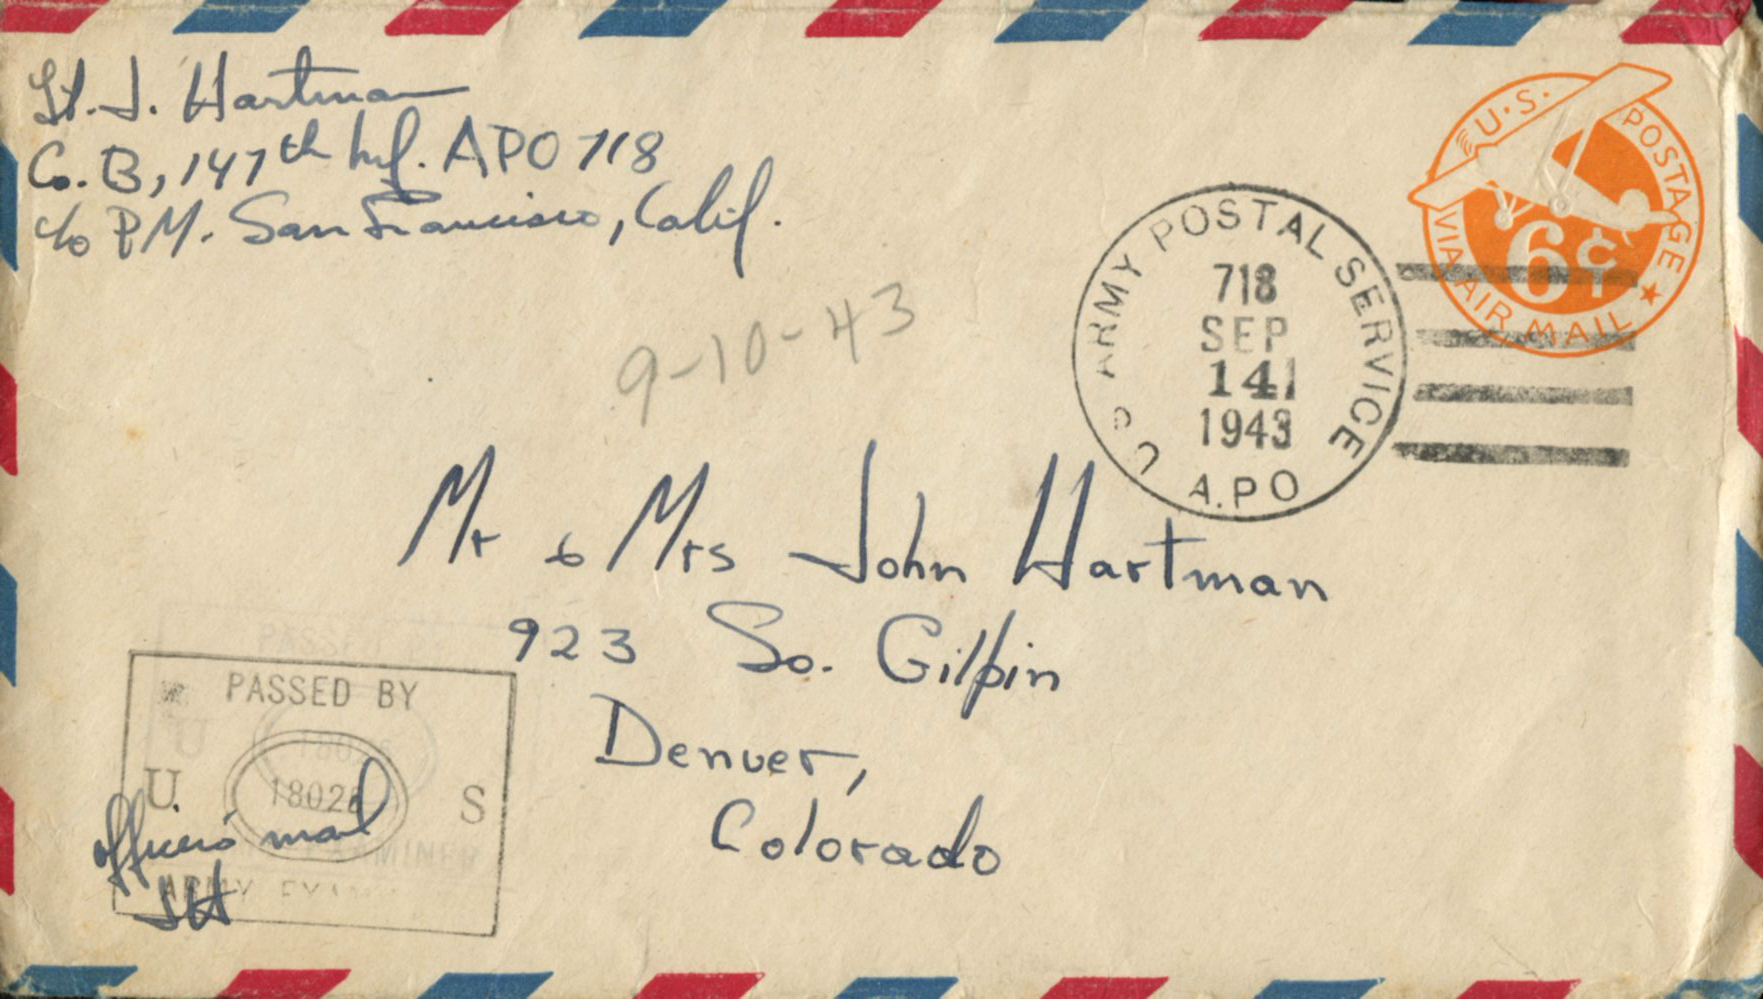 Lt. J. Hartman
Co. B, 147th Inf. APO 718
c/o P.M. San Francisco, Calif.
U.S. POSTAGE
6¢
VIA AIR MAIL
ARMY POSTAL SERVICE
718
SEP
141
1943
A.P.O
9-10-43
Mr & Mrs John Hartman
923 So. Gilpin
Denver,
Colorado
PASSED BY
U. S
18026
officers mail
ARMY EXAMINER
JH